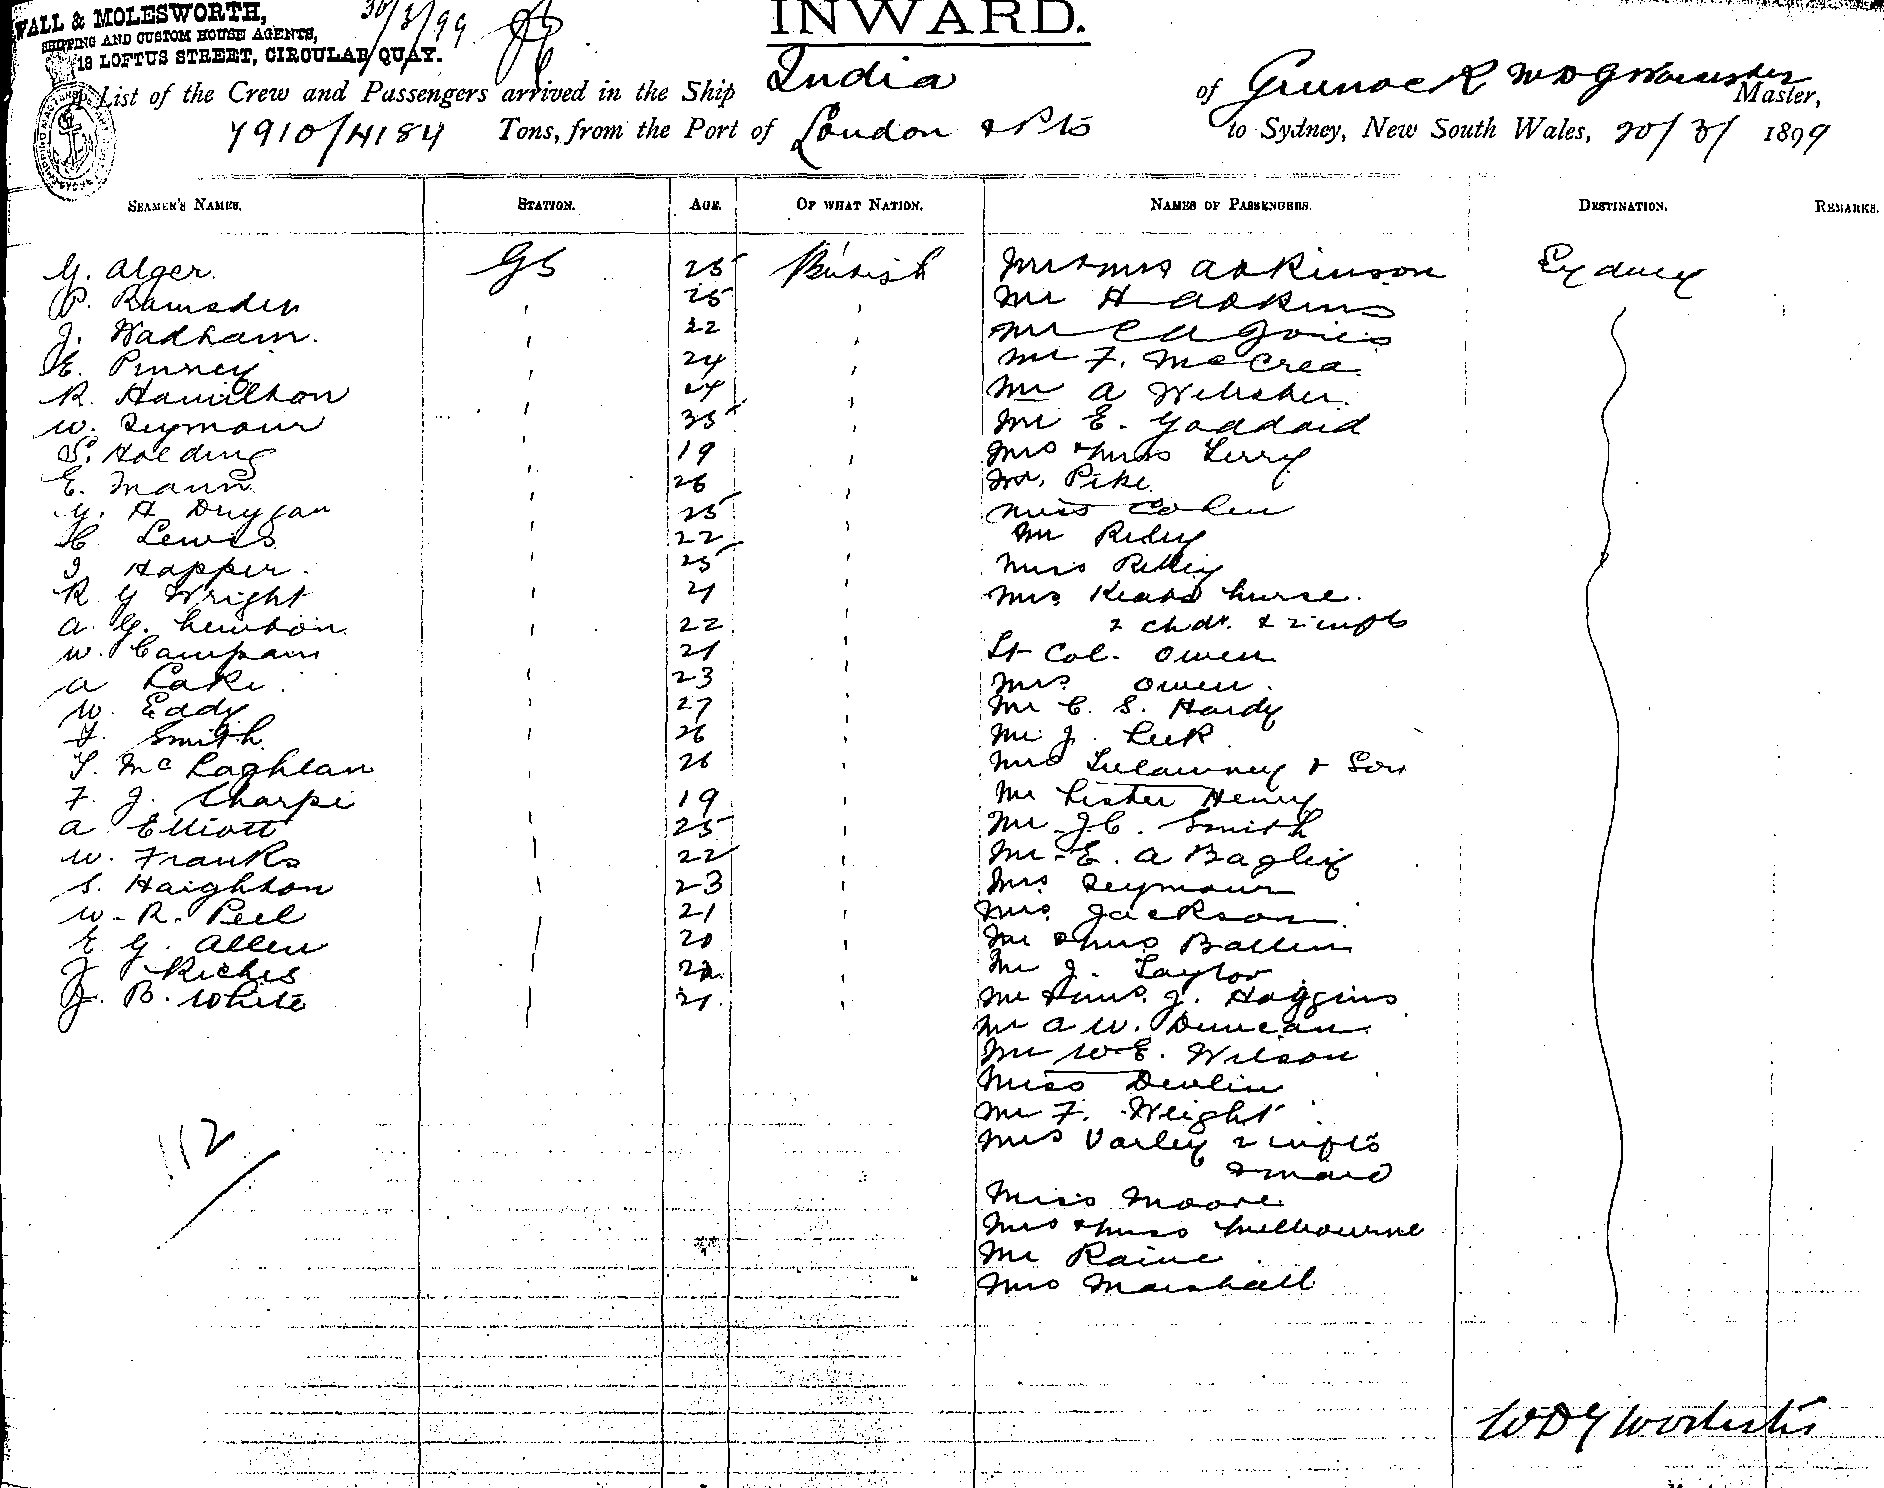 WALL & MOLESWORTH,
SHIPPING AND CUSTOM HOUSE AGENTS,
18 LOFTUS STREET, CIRCULAR QUAY.
30/3/99
INWARD.
List of the Crew and Passengers arrived in the Ship India of Greenock W D G Worcester Master,
7910/4184 Tons, from the Port of London & Pts to Sydney, New South Wales, 20/3/ 1899
SEAMEN'S NAMES. STATION. AGE. OF WHAT NATION. NAMES OF PASSENGERS. DESTINATION. REMARKS.
G. Alger GS 25 British Mr & Mrs Adkinson Sydney
P. Ramsden 25 Mr H Adkins
J. Wadham 22 Mr C A Jones
E. Pinney 24 Mr F. McCrea
R. Hamilton 24 Mr A Webster
W. Seymour 35 Mr E. Goddard
S. Holding 19 Mrs & Miss Terry
E. Mann 26 Mr. Pike
G. H Duggan 25 Miss Cohen
C Lewis 22 Mr Riley
J Happer 25 Miss Riley
R G Wright 21 Mrs Keats nurse
A. G. Newton 22 2 chdn. & 2 infts
W. Campain 21 Lt Col. Owen
A Lake 23 Mrs Owen
W. Eddy 27 Mr C. S. Hardy
F. Smith 26 Mr J. Leek
T. McLaghlan 26 Mrs Trelawney & Son
F. J. Sharpe 19 Mr Lister Henry
A Elliott 25 Mr J C. Smith
W. Franks 22 Mr E. A Bagley
S. Haighton 23 Mrs Seymour
W. R. Peel 21 Mrs Jackson
E G. Allen 20 Mr & Mrs Ballin
J Riches 22 Mr J. Taylor
J. B. White 21 Mr & Mrs. J. Hoggins
Mr A W. Duncan
Mr W E. Wilson
Miss Devlin
Mr F. Weight
Mrs Varley 2 infts
& maid
Miss Moore
Mrs & Miss Milbourne
Mr Raine
Mrs Marshall
112
W D G Worcester